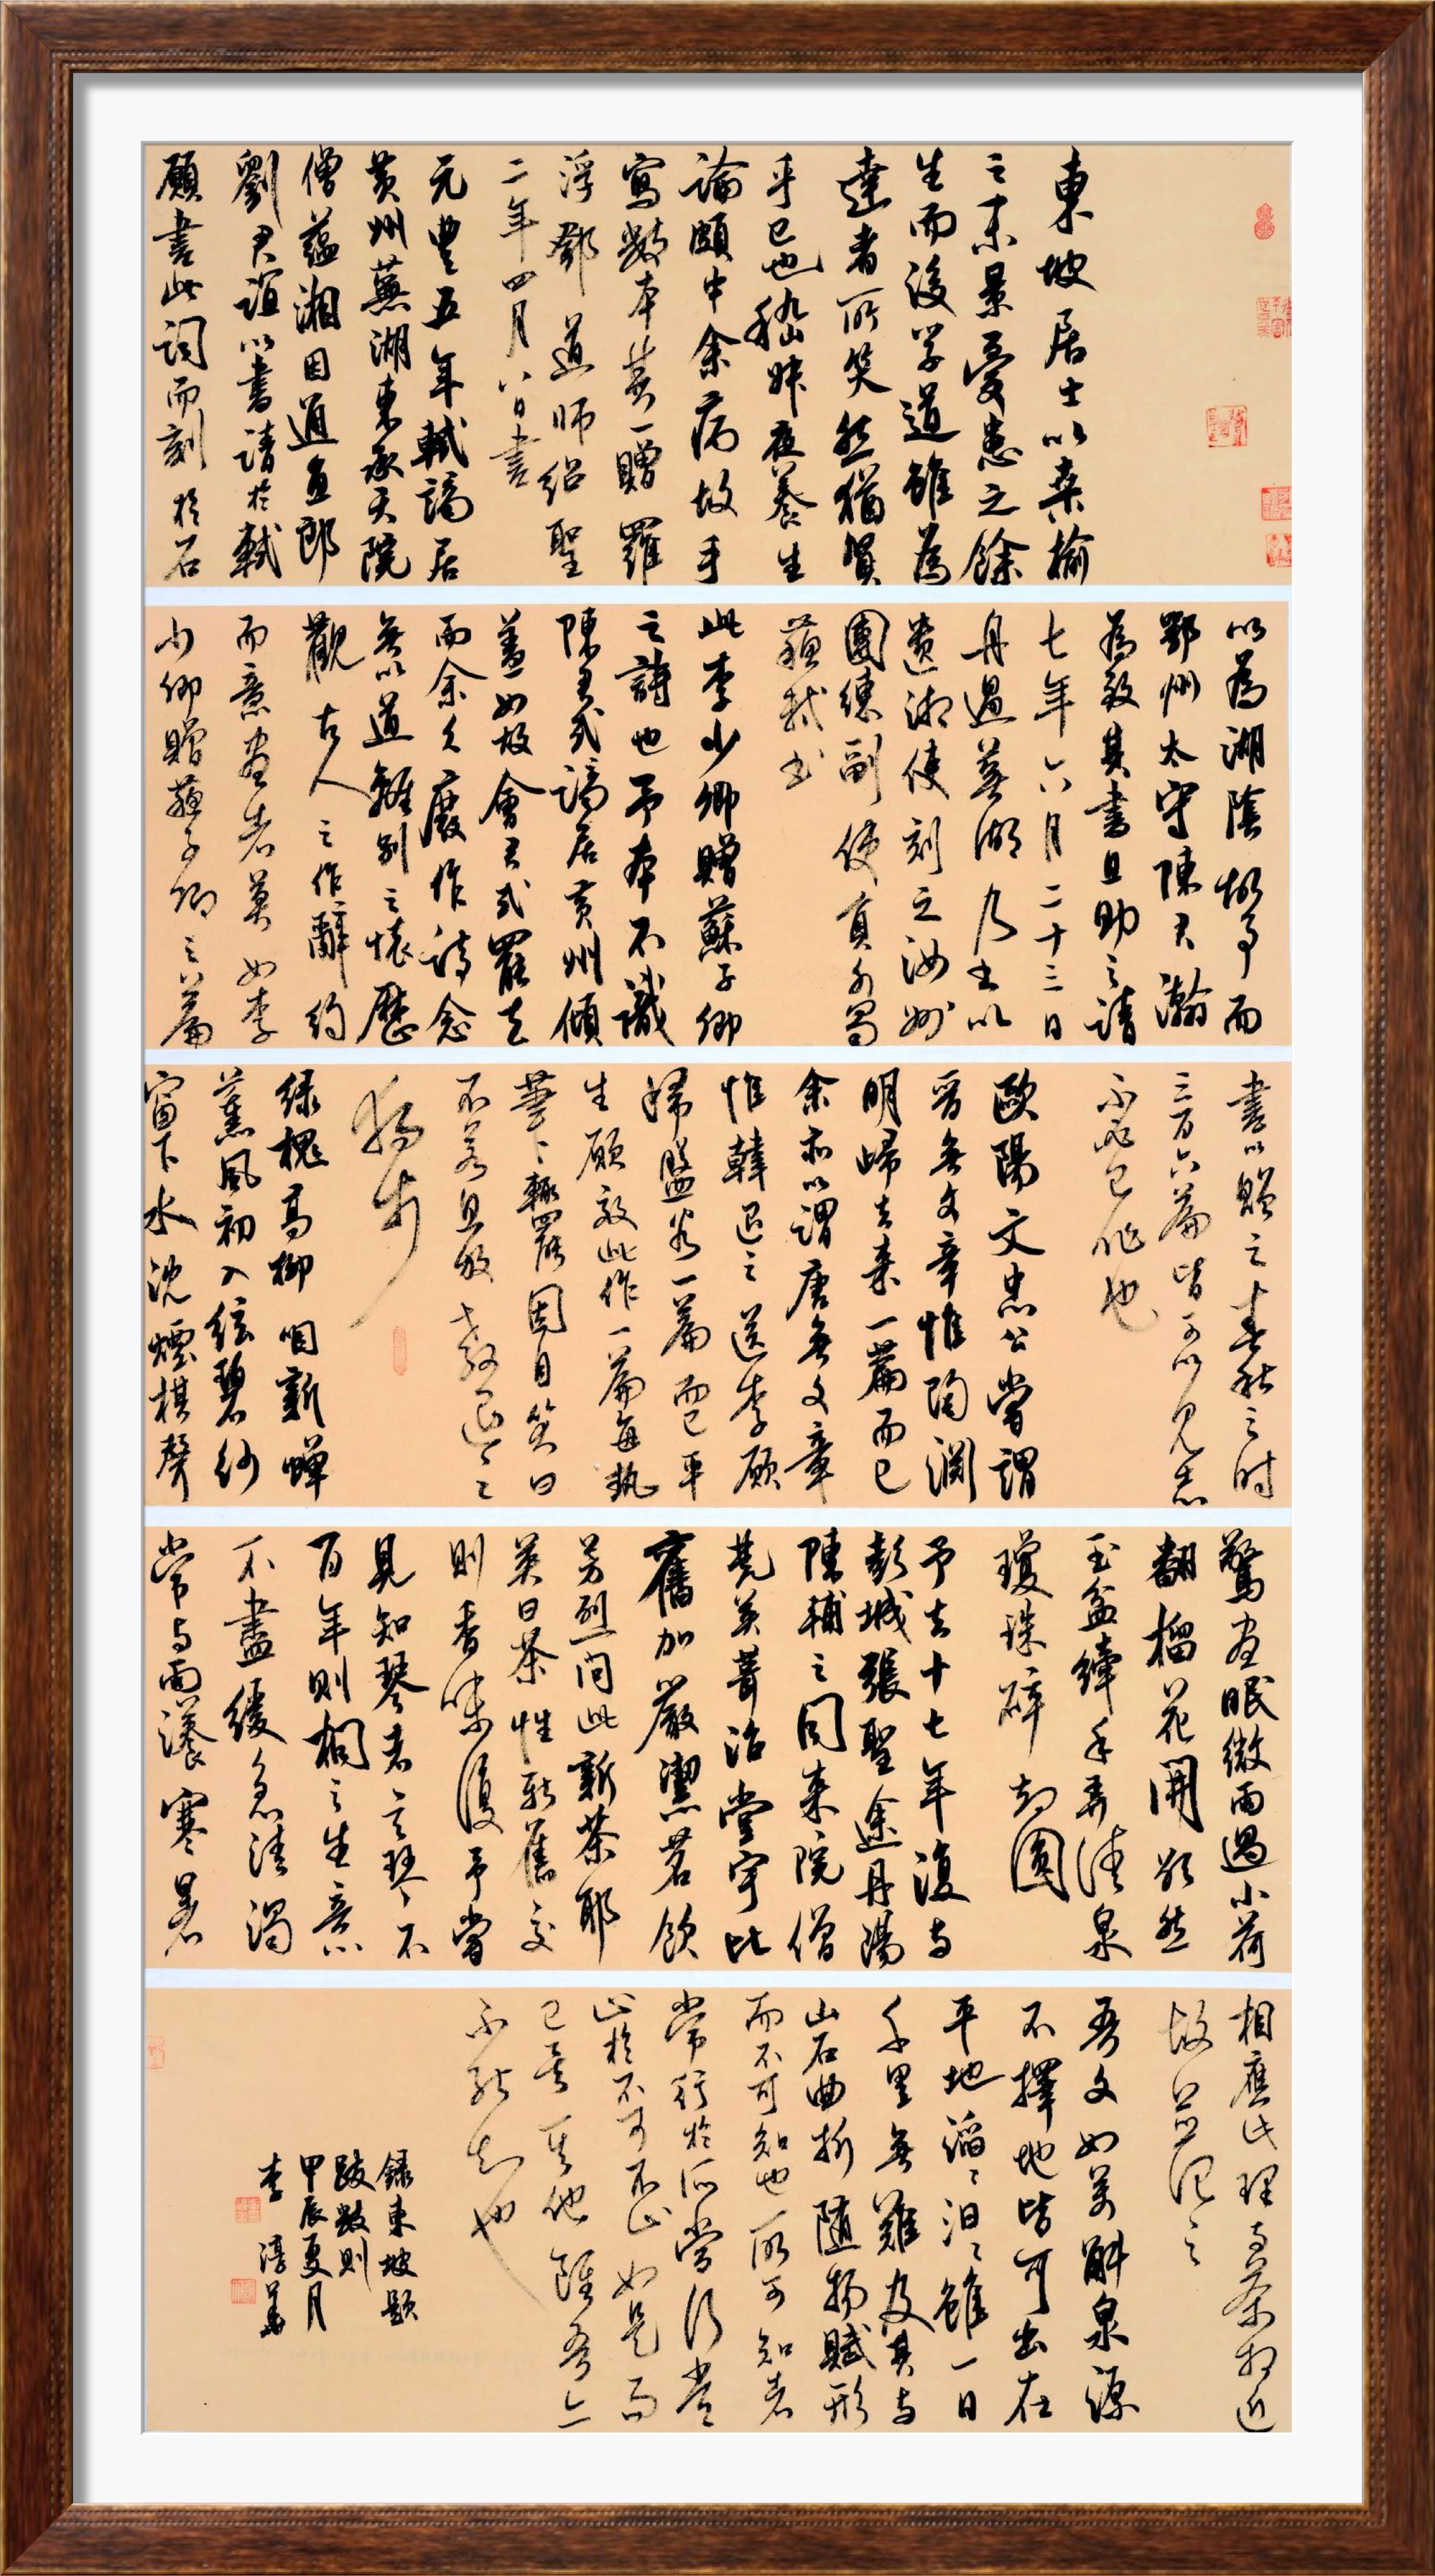 東坡居士以桑榆
之末景憂患之餘
生而後學道雖為
達者所笑然猶賢
乎已也嵇叔夜養生
論頗中余病故手
寫數本其一贈羅
浮鄧道師紹聖
二年四月八日書
元豐五年軾謫居
黃州蕪湖東承天院
僧蘊湘因通直郎
劉君誼以書請於軾
願書此詞而刻於石
以為湖陰故事而
鄂州太守陳君瀚
為致其書且助之請
七年六月二十三日
舟過蕪湖乃書以
遺湘使刻之汝州
團練副使員外置
蘇軾書
此李少卿贈蘇子卿
之詩也予本不識
陳君式謫居黃州傾
蓋如故會君式罷去
而余久廢作詩念
無以道離別之懷歷
觀古人之作辭約
而意盡者莫如李
少卿贈蘇子卿之篇
書以贈之春秋之時
三百六篇皆可以見志
不必己作也
歐陽文忠公嘗謂
晉無文章惟陶淵
明歸去來一篇而已
余亦以謂唐無文章
惟韓退之送李愿
歸盤谷一篇而已平
生願效此作一篇每執
筆輒罷因自笑曰
不若且放教退之
獨步
綠槐高柳咽新蟬
薰風初入弦碧紗
窗下水沈煙棋聲
驚晝眠微雨過小荷
翻榴花開欲然
玉盆纖手弄清泉
瓊珠碎却圓
予去十七年復與
彭城張聖途丹陽
陳輔之同來院僧
梵英葺治堂宇比
舊加嚴潔茗飲
芳烈問此新茶耶
英曰茶性新舊交
則香味復予嘗
見知琴者言琴不
百年則桐之生意
不盡緩急清濁
常與雨暘寒暑
相應此理與茶相近
故並記之
吾文如萬斛泉源
不擇地皆可出在
平地滔滔汩汩雖一日
千里無難及其與
山石曲折隨物賦形
而不可知也所可知者
常行於所當行常
止於不可不止如是而
已矣其他雖吾亦
不能知也
錄東坡題
跋數則
甲辰夏月
李